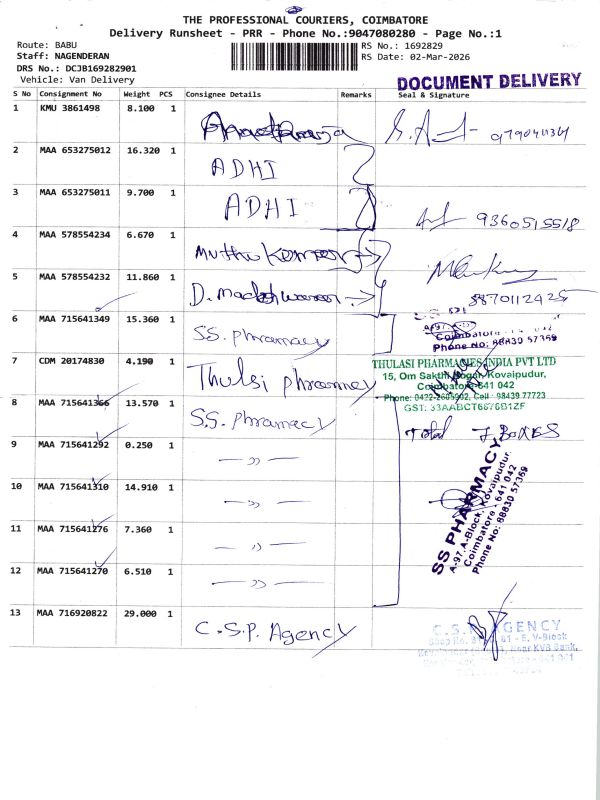 THE PROFESSIONAL COURIERS, COIMBATORE
Delivery Runsheet - PRR - Phone No.:9047080280 - Page No.:1
Route: BABU
RS No.: 1692829
Staff: NAGENDERAN
RS Date: 02-Mar-2026
DRS No.: DCJB169282901
Vehicle: Van Delivery
DOCUMENT DELIVERY
S No Consignment No Weight PCS Consignee Details Remarks Seal & Signature
1 KMU 3861498 8.100 1
2 MAA 653275012 16.320 1 ADHI
3 MAA 653275011 9.700 1 ADHI 9360515518
4 MAA 578554234 6.670 1 Muthu Kumar
5 MAA 578554232 11.860 1 D. Madeshwaran 8870112425
6 MAA 715641349 15.360 1 SS. phramacy
Coimbatore
Phone No: 88830 57369
7 CDM 20174830 4.190 1 Thulsi phramney
THULASI PHARMACIES INDIA PVT LTD
15, Om Sakthi Nagar, Kovaipudur,
Coimbatore-641 042
Phone: 0422-2605902, Cell: 98439 77723
GST: 33AABCT6676B1ZF
8 MAA 715641366 13.570 1 S.S. Phramacy
Total 7 BOXES
9 MAA 715641292 0.250 1 — ,, —
10 MAA 715641310 14.910 1 — ,, —
11 MAA 715641276 7.360 1 — ,, —
12 MAA 715641270 6.510 1 — ,, —
SS PHARMACY
A-97, A-Block, Kovaipudur,
Coimbatore - 641 042
Phone No: 88830 57369
13 MAA 716920822 29.000 1 C.S.P. Agency